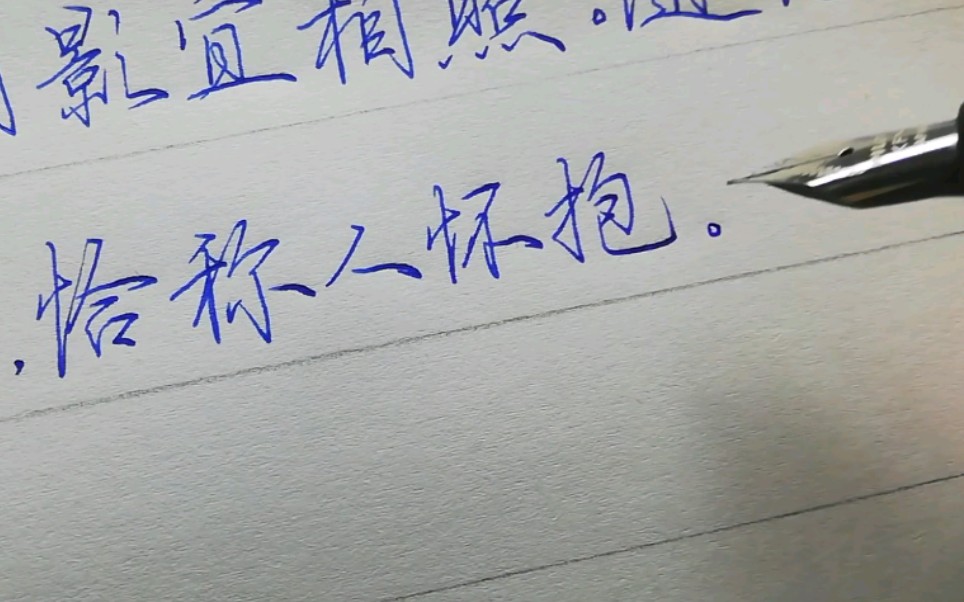 影宜相照。随
，恰称人怀抱。